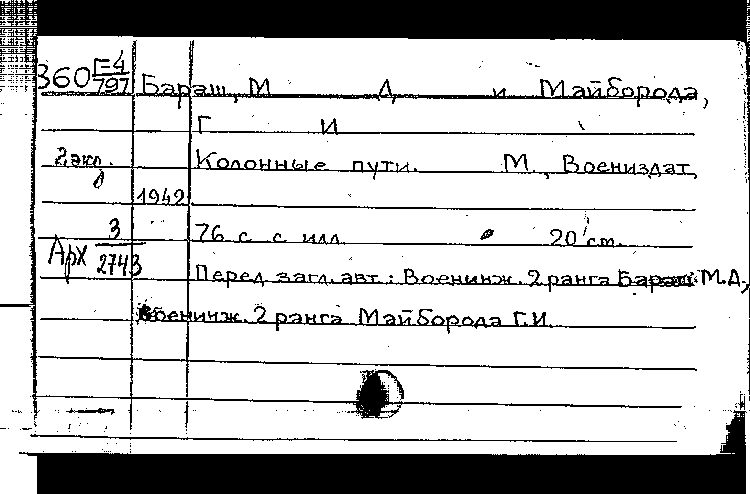 360 Г-4/797 Бараш, М Д и Майборода,
Г И
2 экз. Колонные пути. М., Воениздат,
1942
76 с. с илл. 20 см.
Арх 3/2743
Перед загл. авт.: Военинж. 2 ранга Бараш М.Д,
Военинж. 2 ранга Майборода Г.И.